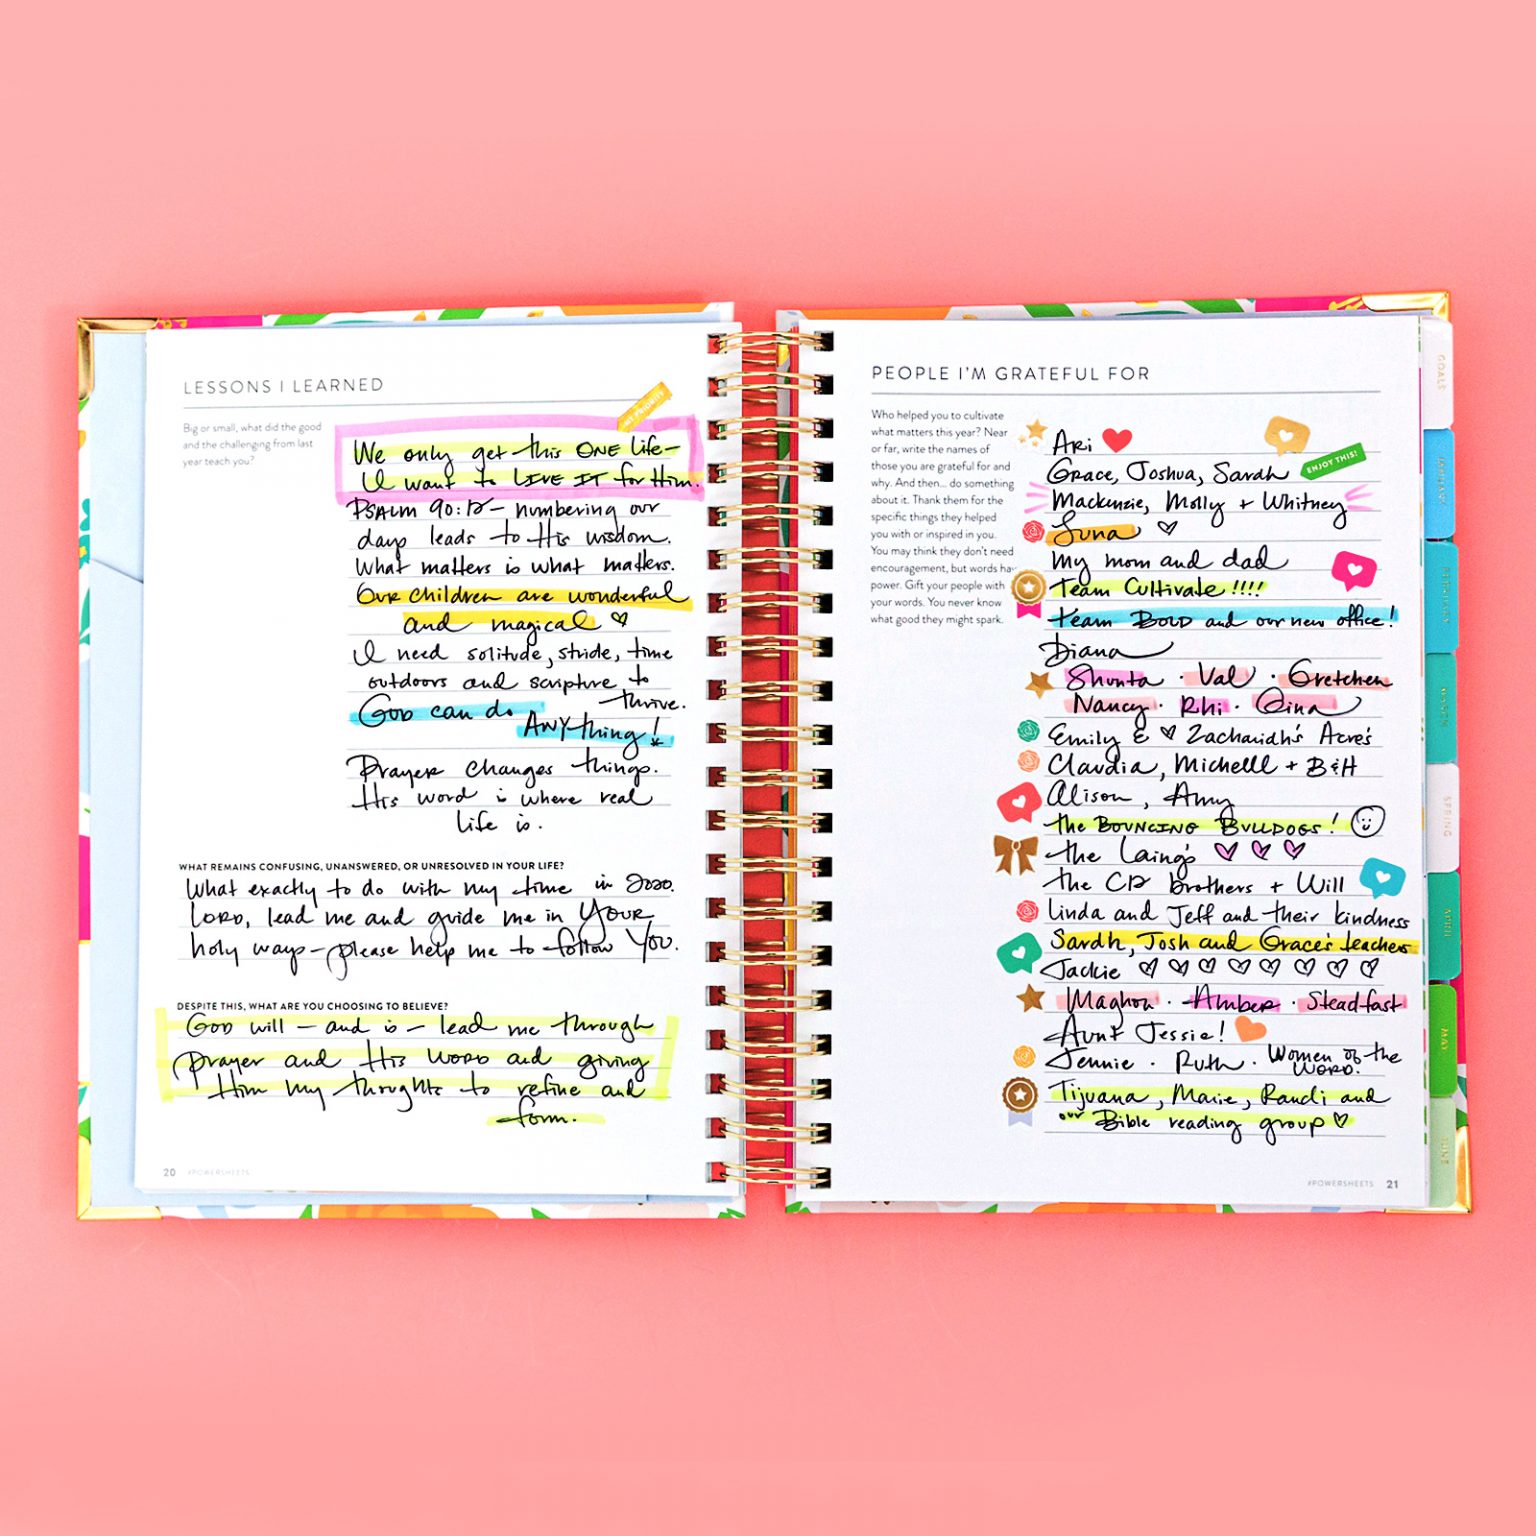 LESSONS I LEARNED
Big or small, what did the good
and the challenging from last
year teach you?
MY PRIORITY
We only get this ONE life—
I want to LIVE IT for Him.
PSALM 90:12— numbering our
days leads to His wisdom.
What matters is what matters.
Our children are wonderful
and magical
I need solitude, stride, time
outdoors and scripture to
thrive.
GOD can do
ANYthing!
Prayer changes things.
His word is where real
life is.
WHAT REMAINS CONFUSING, UNANSWERED, OR UNRESOLVED IN YOUR LIFE?
What exactly to do with my time in 2020.
LORD, lead me and guide me in YOUR
holy ways—please help me to follow YOU.
DESPITE THIS, WHAT ARE YOU CHOOSING TO BELIEVE?
GOD will — and is — lead me through
prayer and His WORD and giving
Him my thoughts to refine and
form.
20 #POWERSHEETS
PEOPLE I'M GRATEFUL FOR
Who helped you to cultivate
what matters this year? Near
or far, write the names of
those you are grateful for and
why. And then... do something
about it. Thank them for the
specific things they helped
you with or inspired in you.
You may think they don't need
encouragement, but words hav
power. Gift your people with
your words. You never know
what good they might spark.
Ari
Grace, Joshua, Sarah
ENJOY THIS!
Mackenzie, Molly + Whitney
Luna
My mom and dad
Team Cultivate!!!!
Team BOLD and our new office!
Diana
Shunta · Val · Gretchen
Nancy · Rhi · Gina
Emily & Zachariah's Acres
Claudia, Michelle + B&H
Alison, Amy
the BOUNCING BULLDOGS!
the Laing's
the CP brothers + Will
Linda and Jeff and their kindness
Sarah, Josh and Grace's teachers
Jackie
Maghon · Amber · Steadfast
Aunt Jessie!
Jennie · Ruth · Women of the
WORD.
Tijuana, Marie, Randi and
our Bible reading group
#POWERSHEETS 21
GOALS
JANUARY
FEBRUARY
MARCH
SPRING
APRIL
MAY
JUNE